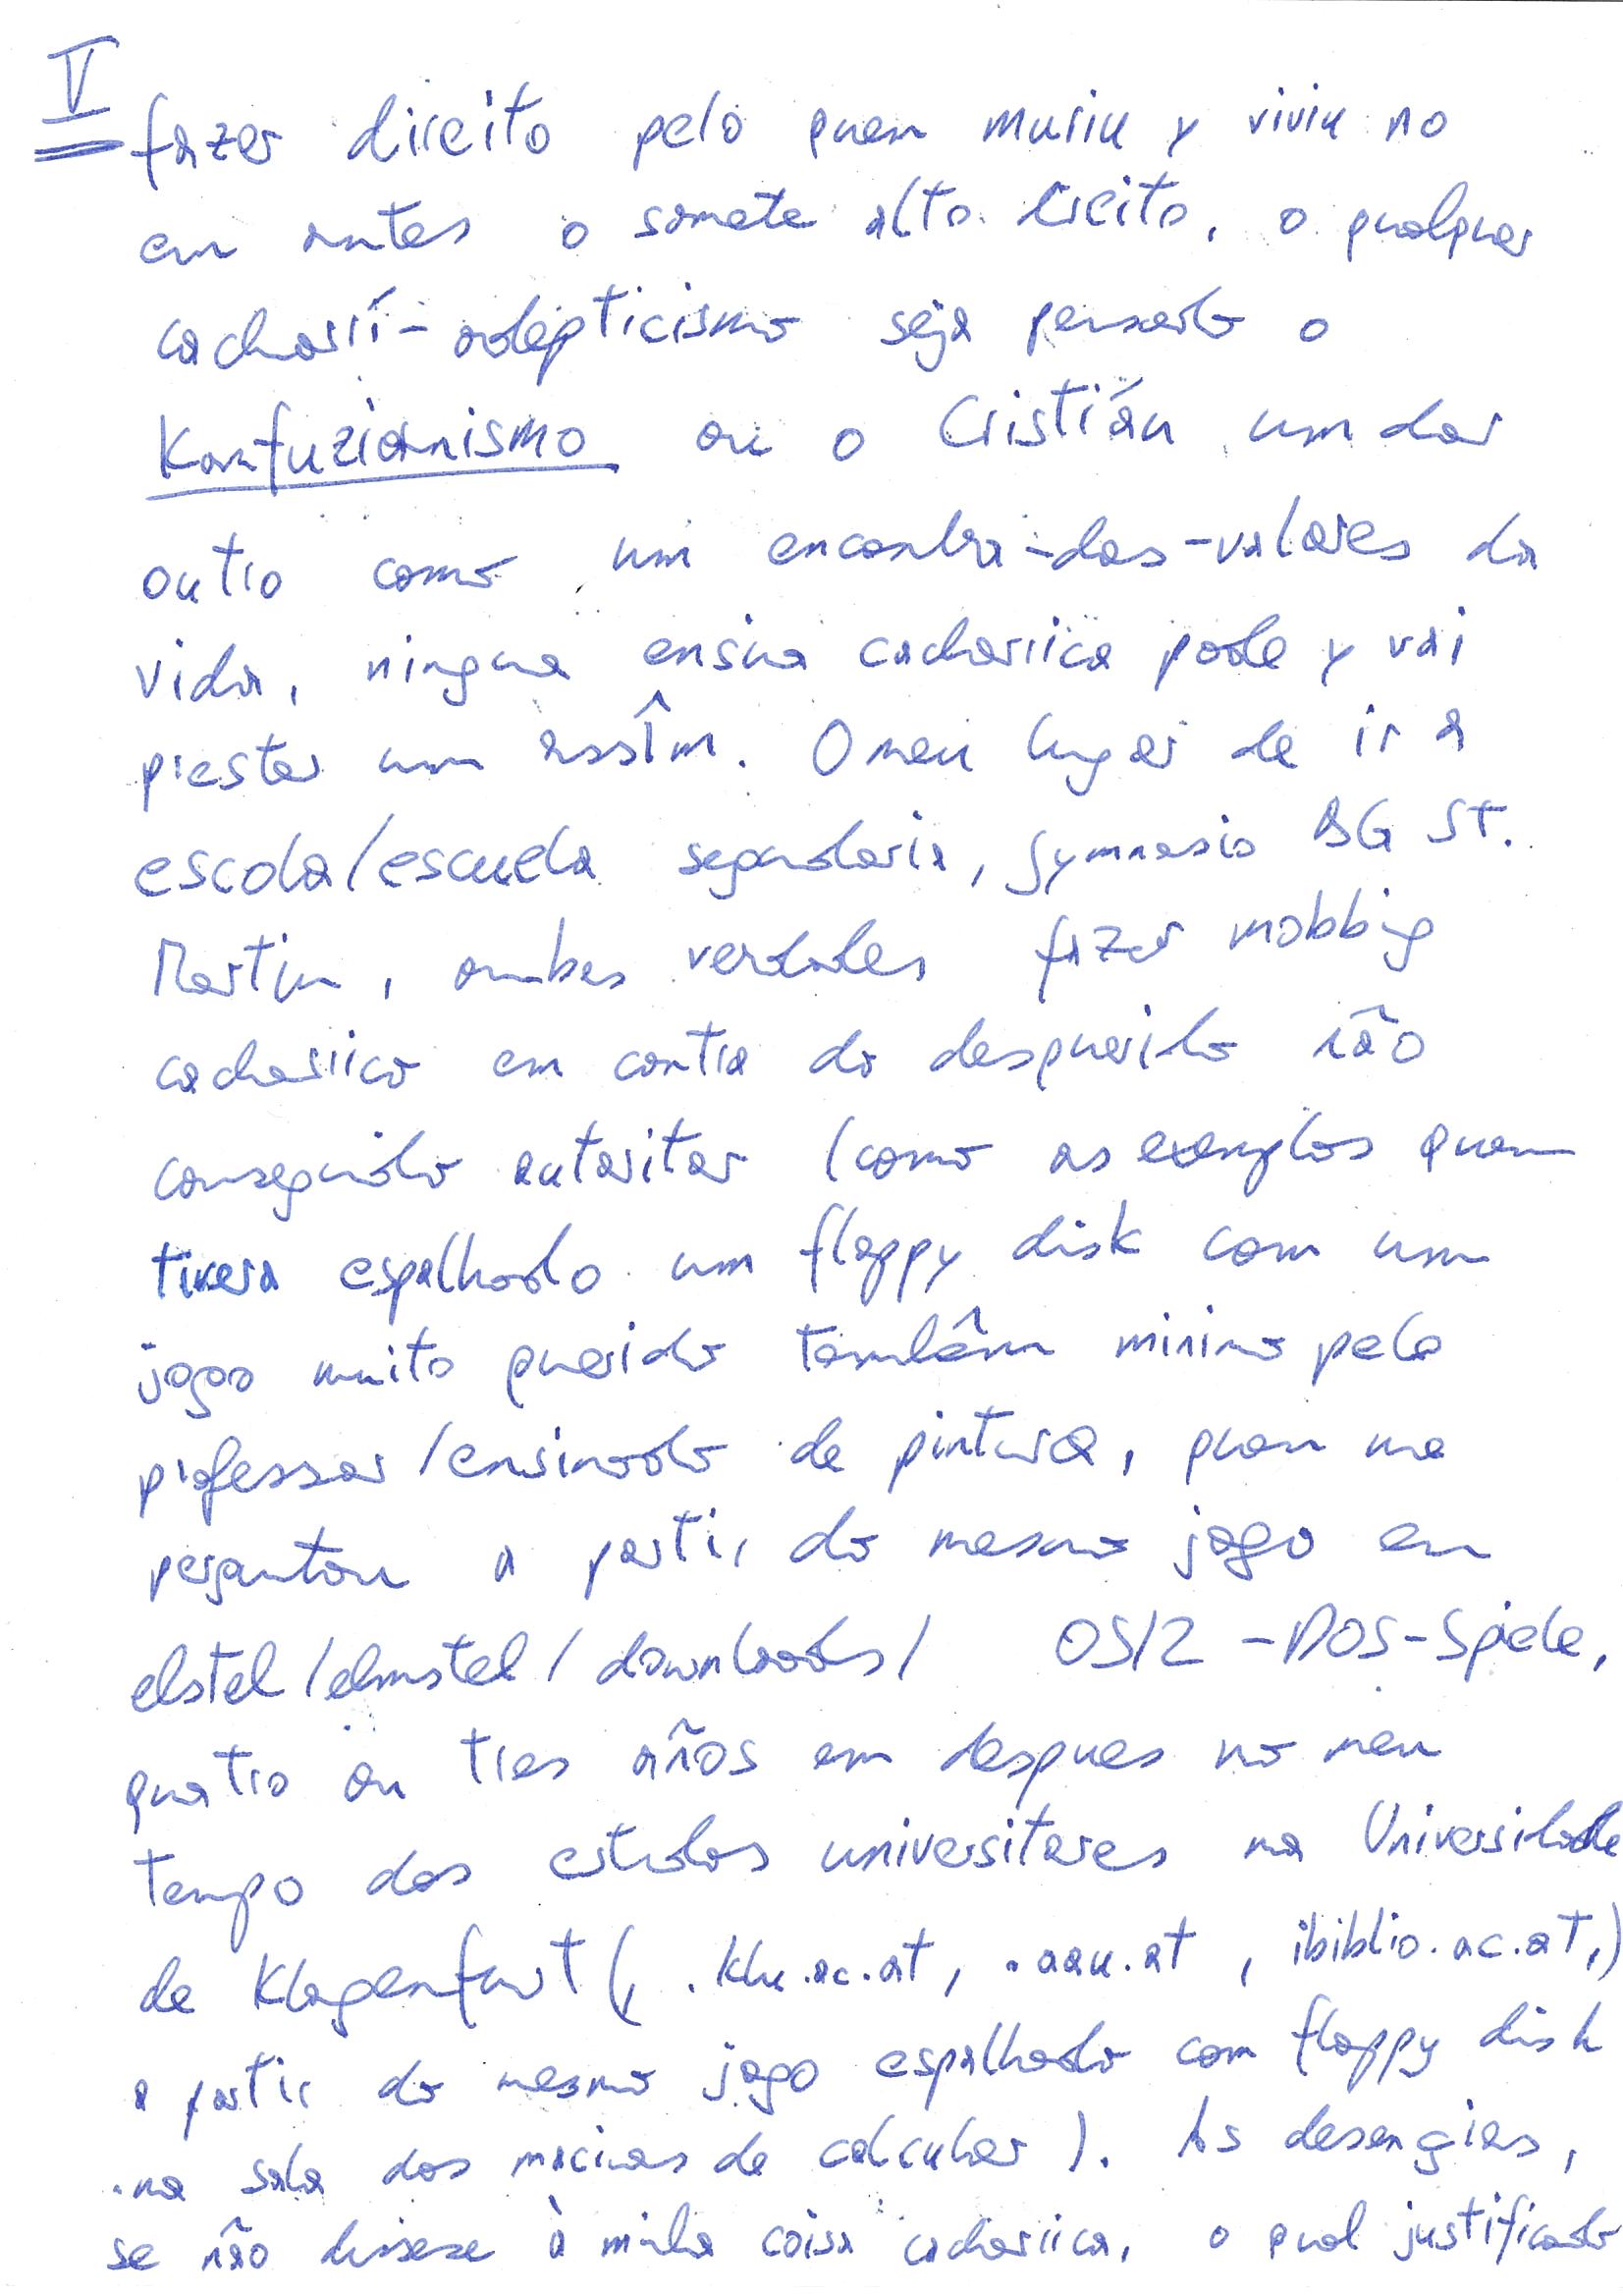 V
fazer direito pelo quem muriu y viviu no
em antes o somete alto licito, o qualquer
cacharrí-adepticismo seja pensado o
Konfuzianismo ou o Cristián um dar
outro como um encontra-dos-valores da
vida, ningua ensina cacharrica pode y vai
prestar um assîm. O meu lugar de ir a
escola/escuela segundaria, gymnasio BG St.
Martin, ambas verdades fazer mobbing
cacharrico em contra do desquerido não
conseguido autoritar (como as exemplos quem
tivera espalhado um floppy disk com um
jogo muito querido também minimo pelo
professor/ensinado de pintura, quem me
perguntou a partir do mesmo jogo em
elstel/elmstel/downloads/ OS/2-DOS-Spiele,
quatro ou tres años em despues no meu
tempo dos estudos universitares na Universidade
de Klagenfurt (, .klu.ac.at, .aau.at, ibiblio.ac.at,)
a partir do mesmo jogo espalhado com floppy disk
na sala dos macinas de calcular). As desengias,
se não dissese à minha coisa cacharrica, o qual justificado